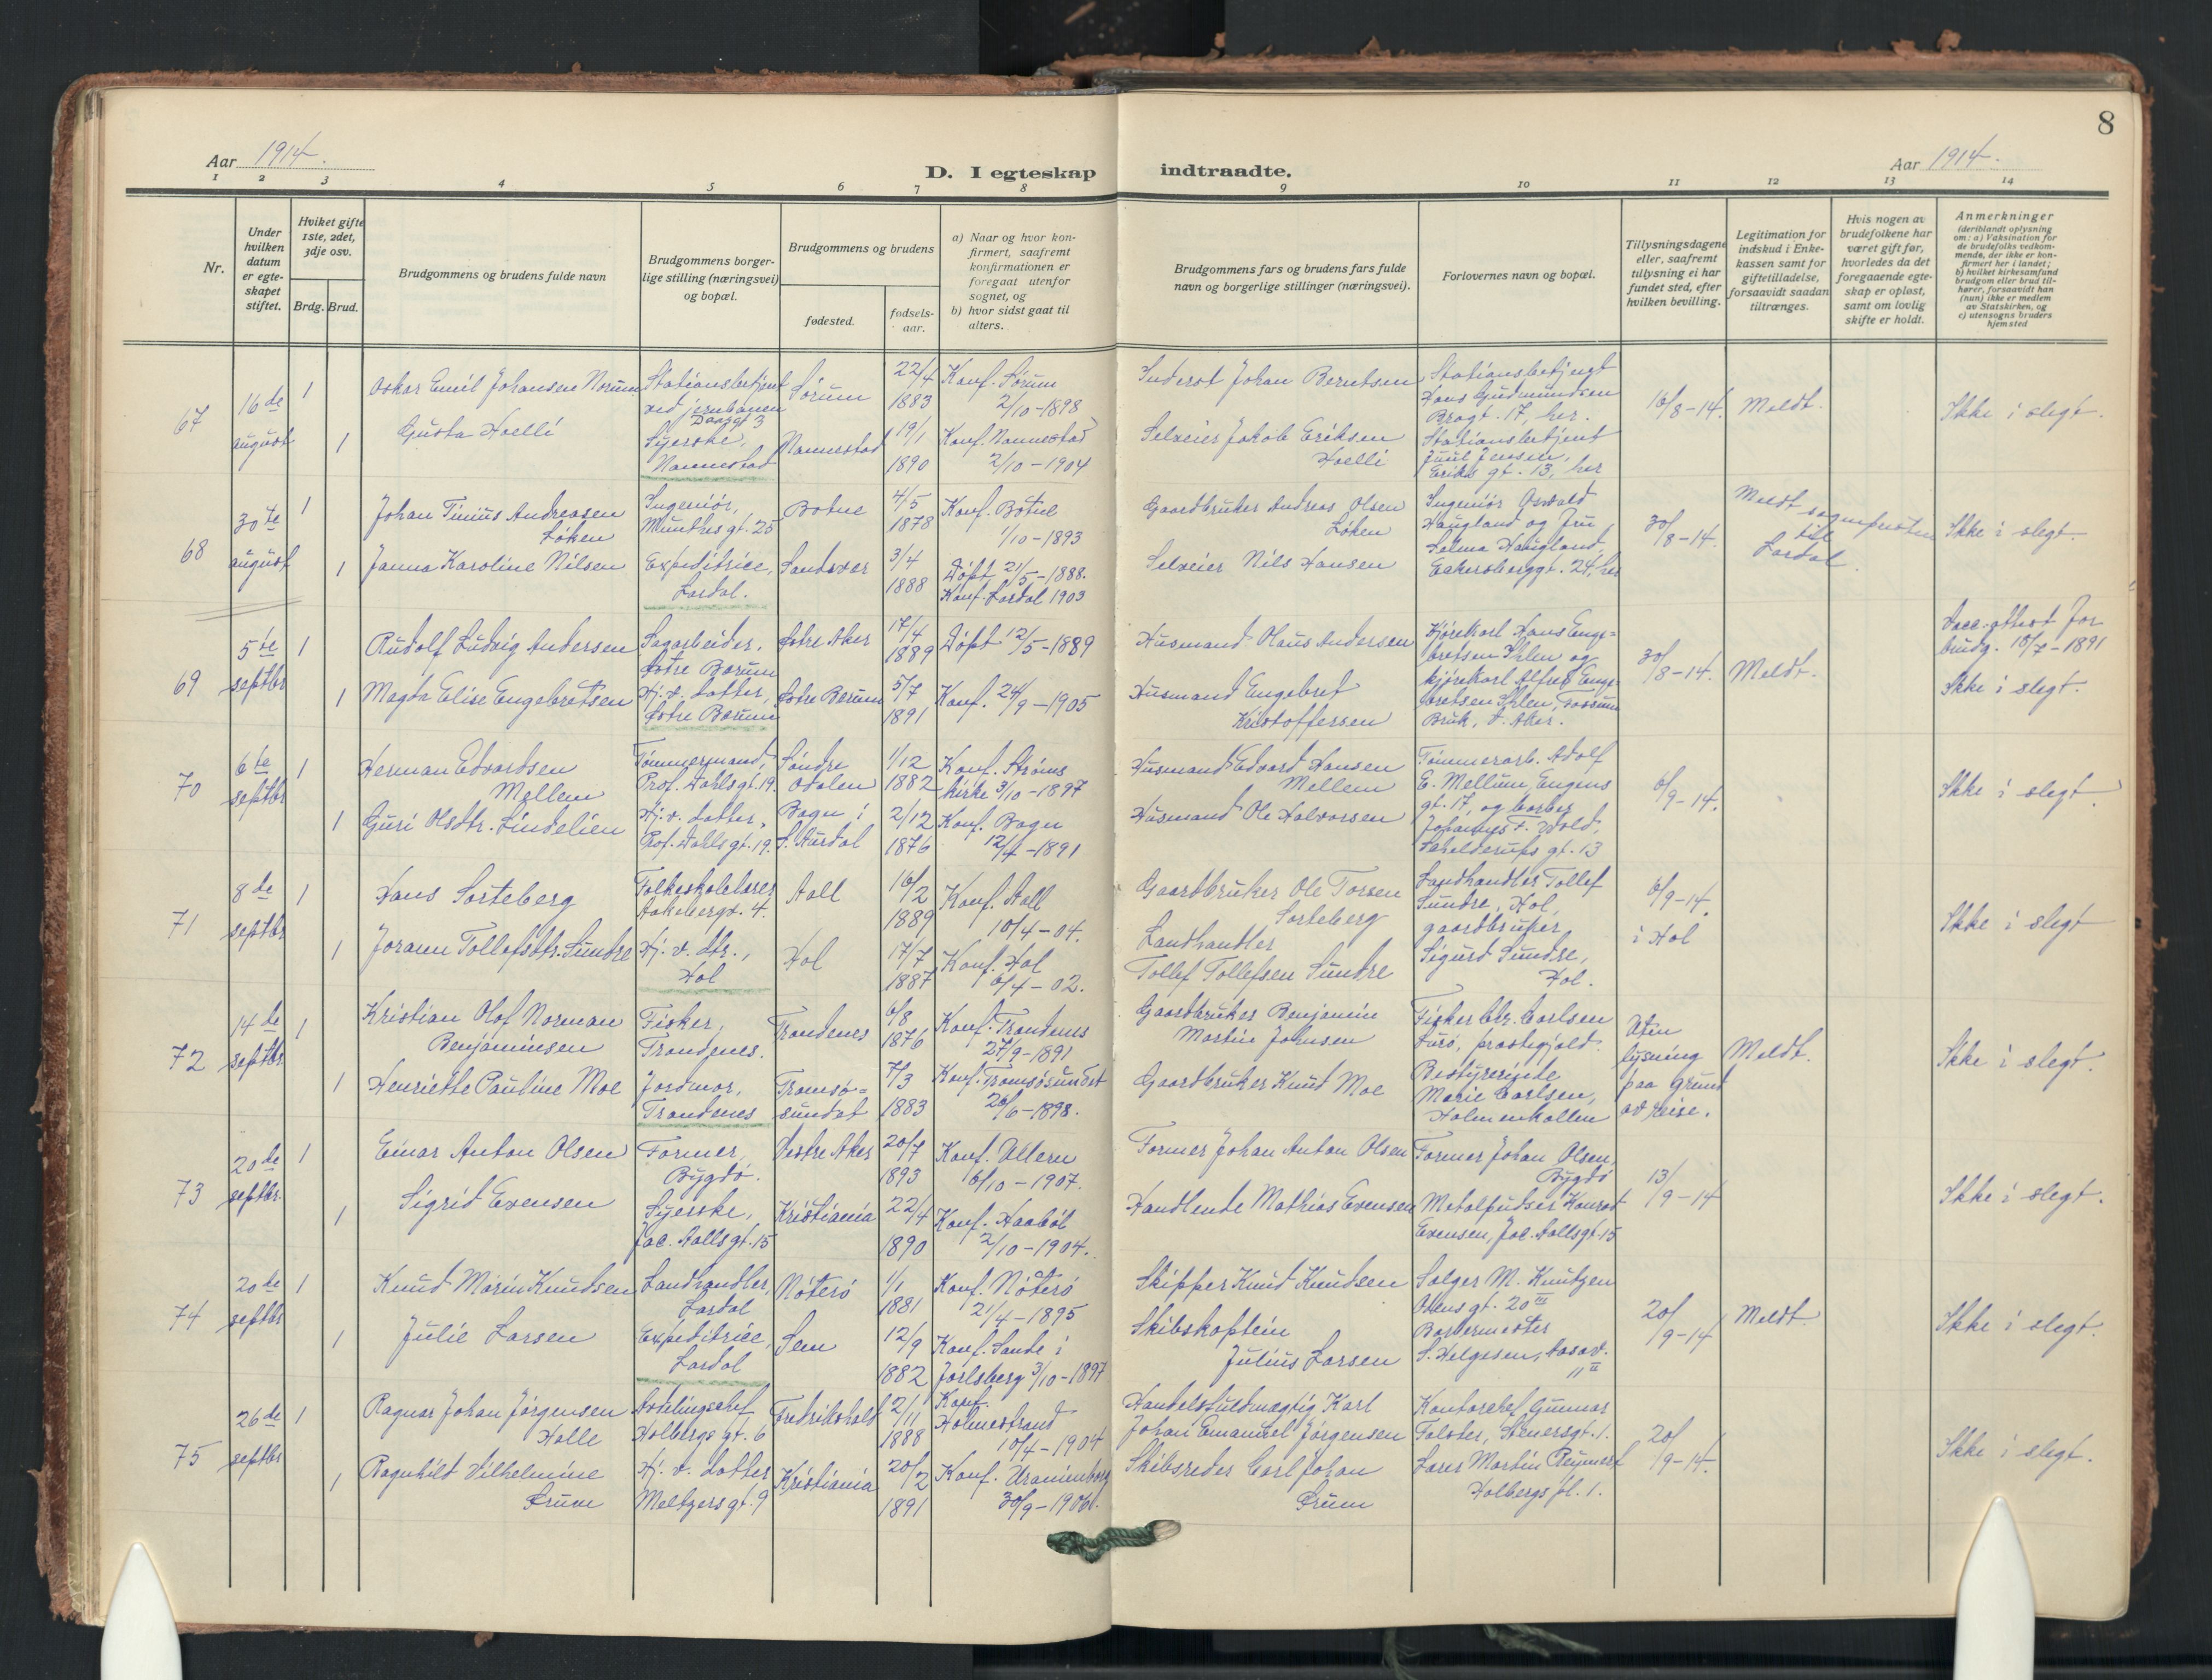 8
Aar 1914.
D. I egteskap indtraadte.
Aar 1914.
1 2 3 4 5 6 7 8 9 10 11 12 13 14
Nr.
Under hvilken datum er egte-skapet stiftet.
Hviket gifte 1ste, 2det, 3dje osv.
Brdg. Brud.
Brudgommens og brudens fulde navn
Brudgommens borger-lige stilling (næringsvei) og bopæl.
Brudgommens og brudens
fødested.
fødsels-aar.
a) Naar og hvor kon-firmert, saafremt konfirmationen er foregaat utenfor sognet, og
b) hvor sidst gaat til alters.
Brudgommens fars og brudens fars fulde navn og borgerlige stillinger (næringsvei).
Forlovernes navn og bopæl.
Tillysningsdagene eller, saafremt tillysning ei har fundet sted, efter hvilken bevilling.
Legitimation for indskud i Enke-kassen samt for giftetilladelse, forsaavidt saadan tiltrænges.
Hvis nogen av brudefolkene har været gift før, hvorledes da det foregaaende egte-skap er opløst, samt om lovlig skifte er holdt.
Anmerkninger (deriblandt oplysning om: a) Vaksination for de brudefolks vedkom-mende, der ikke er kon-firmert her i landet; b) hvilket kirkesamfund brudgom eller brud til-hører, forsaavidt han (hun) ikke er medlem av Statskirken, og c) utensogns bruders hjemsted
67
16de august
1
Oskar Emil Johansen Norum
Stationsbetjent ved jernbanen
Daasgt 3
Sørum
22/4 1883
Konf. Sørum 2/10-1898
Inderst Johan Berntsen
Stationsbetjent Hans Gudmundsen Bragt. 17, her.
16/8-14.
Meldt.
Ikke i slegt.
1
Gusta Hoelli
Syerske, Nannestad
Nannestad
19/1 1890
Konf. Nannestad 2/10-1904
Selveier Jakob Eriksen Hoelli
Stationsbetjent Juul Jensen, Eriks gt. 13, her
68
30te august
1
Johan Tinius Andreasen Løken
Ingeniør, Munthes gt. 25
Botne
4/5 1878
Konf. Botne 1/10-1893
Gaardbruker Andreas Olsen Løken
Ingeniør Osvald Haugland og Fru Selma Haugland, Eakersberggt. 24, her
30/8-14.
Meldt sognepresten til Lardal.
Ikke i slegt.
1
Janna Karoline Nilsen
Expeditrice, Lardal.
Sandsvær
3/4 1888
Døpt 21/5-1888. Konf. Lardal 1903
Selveier Nils Hansen
69
5te septbr
1
Rudolf Ludvig Andersen
Sagarbeider, Østre Bærum
Østre Aker
17/4 1889
Døpt 12/5-1889
Husmand Olaus Andersen
Kjørekarl Hans Enge-bretsen Ihlen og kjørekarl Alfred Enge-bretsen Ihlen, Fossum Bruk, V. Aker.
30/8-14.
Meldt.
Vacc. attest for brudg. 18/7-1891
Ikke i slegt.
1
Magda Elise Engebretsen
Hj. v. datter, Østre Bærum
Østre Bærum
5/7 1891
Konf. 24/9-1905
Husmand Engebret Kristoffersen
70
6te septbr
1
Herman Edvardsen Mellem
Tømmermand, Prof. Dahlsgt. 19.
Søndre Odalen
1/12 1882
Konf. Strøms kirke 3/10-1897
Husmand Edvard Hansen Mellem
Tømmerarb. Adolf E. Mellum, Engens gt. 17, og barber Johannes F. Wold, Schelderups gt. 13
6/9-14.
Ikke i slegt.
1
Guri Olsdtr. Lindelien
Hj. v. datter, Prof. Dahls gt. 19.
Bagn i S. Aurdal
2/12 1876
Konf. Bagn 12/4-1891
Husmand Ole Halvorsen
71
8de septbr
1
Hans Sorteberg
Folkeskolelærer Aakebergv. 4.
Aall
16/2 1889
Konf. Aall 10/4-04.
Gaardbruker Ole Torsen Sorteberg
Landhandler Tollef Sundre, Hol, gaardbruker Sigurd Sundre, Hol.
6/9-14. i Hol
Ikke i slegt
1
Jorann Tollefsdtr. Sundre
Hj. v. dtr., Hol
Hol
17/7 1887
Konf. Hol 6/4-02.
Landhandler Tollef Tollefsen Sundre
72
14de septbr
1
Kristian Olaf Norman Benjaminsen
Fisker, Trondenes.
Trondenes
6/8 1876
Konf. Trondenes 27/9-1891
Gaardbruker Benjamin Martin Johnsen
Fisker Chr. Carlsen Turø, præstegjeld.
Uten lysning paa grund av reise.
Meldt.
Ikke i slegt.
1
Henriette Pauline Moe
Jordmor, Trondenes
Tromsø-sundet
7/3 1883
Konf. Tromsøsundet 26/6-1898.
Gaardbruker Knud Moe
Bestyrerinde Marie Carlsen, Holmenkollen
73
20de septbr.
1
Einar Anton Olsen
Former, Bygdø.
Vestre Aker
20/7 1893
Konf. Ullern 6/10-1907.
Former Johan Anton Olsen
Former Johan Olsen, Bygdø
13/9-14
Ikke i slegt.
1
Sigrid Evensen
Syerske, Jac. Aallsgt. 15
Kristiania
22/4 1890
Konf. Haabøl 2/10-1904.
Handlende Mathias Evensen
Metalpudser Konrad Evensen, Jac. Aallsgt. 15
74
20de septbr
1
Knud Marin Knudsen
Landhandler, Lardal
Nøterø
1/1 1881
Konf. Nøterø 21/4-1895
Skipper Knud Knudsen
Selger M. Knutzen Odensgt. 20 III
20/9-14
Meldt.
Ikke i slegt.
1
Julie Larsen
Expeditrice, Lardal
Sem
12/9 1882
Konf. Sande i Jarlsberg 3/10-1897
Skibskaptein Julius Larsen
Barbermester S. Helgesen, Aasav. 11 II
75
26de septbr
1
Ragnar Johan Jørgensen Holle
Avdelingschef Holbergs gt. 6
Fredrikshald
2/11 1888
Konf. Holmestrand 10/4-1904
Handelsfuldmægtig Karl Johan Emanuel Jørgensen
Kontorchef Gunnar Falster, Steners gt. 1.
20/9-14.
Ikke i slegt.
1
Ragnhild Vilhelmine Ørum
Hj. v. datter Meltzers gt. 9
Kristiania
20/2 1891
Konf. Uranienborg 30/9-1906.
Skibsreder Carl Johan Ørum
Lærer Martin Reymert Holbergs pl. 1.